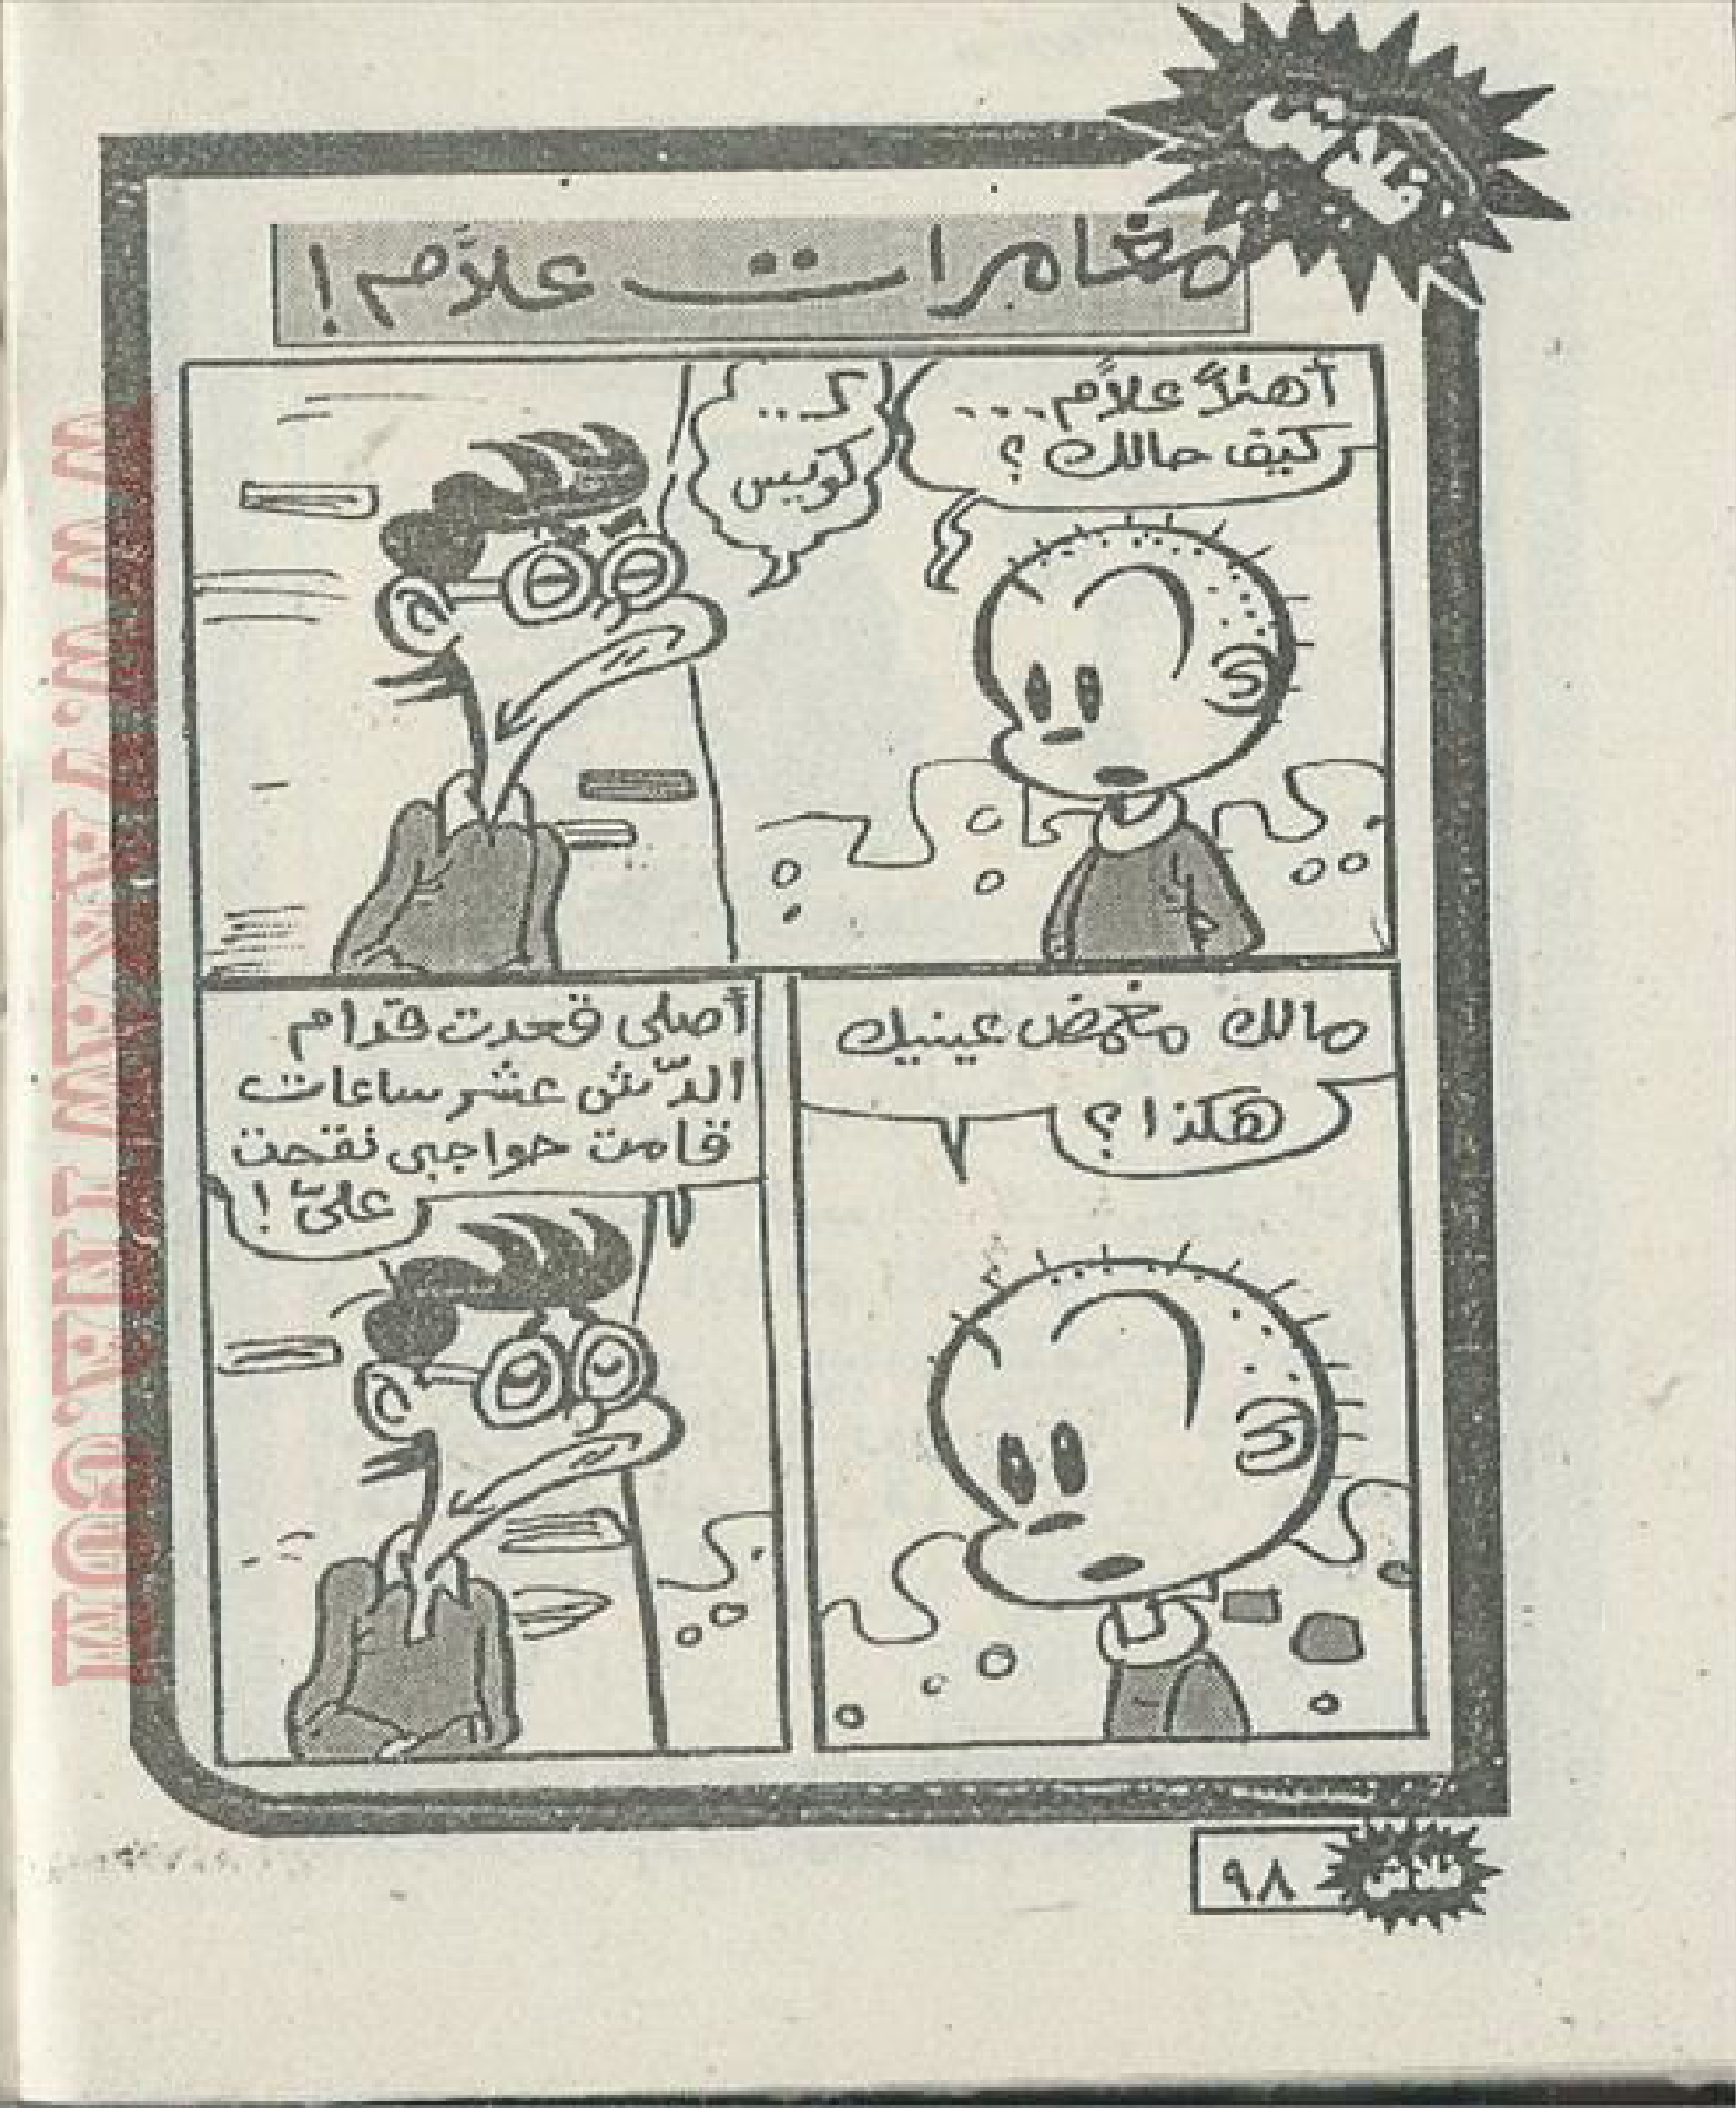 فلاش
مغامرات علاّم !
أهلاً علاّم ...
كيف حالك ؟
كويس
مالك مغمض عينيك
هكذا ؟
أصلى قعدت قدام
الدّش عشر ساعات
قامت حواجبى نقحت
علىّ !
فلاش
٩٨